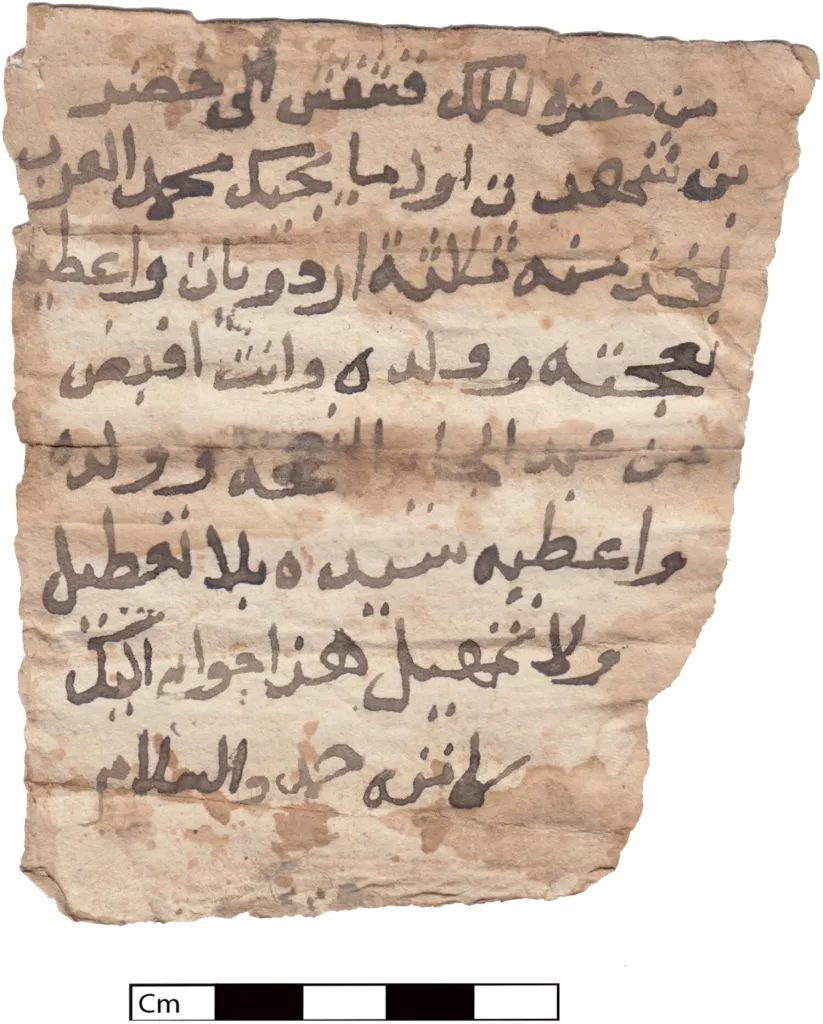 من حضرة الملك قشقش الى خضر
بن شهدت اول ما يجيك محمد العرب
منه ثلاثة اردويات واعطيه
نعجته وولده وانت اقبض
من عبد النعجه وولده
واعطيه سيده بلا تعطيل
ولا تمهيل هذا جوابي اليك
حد والسلام
Cm